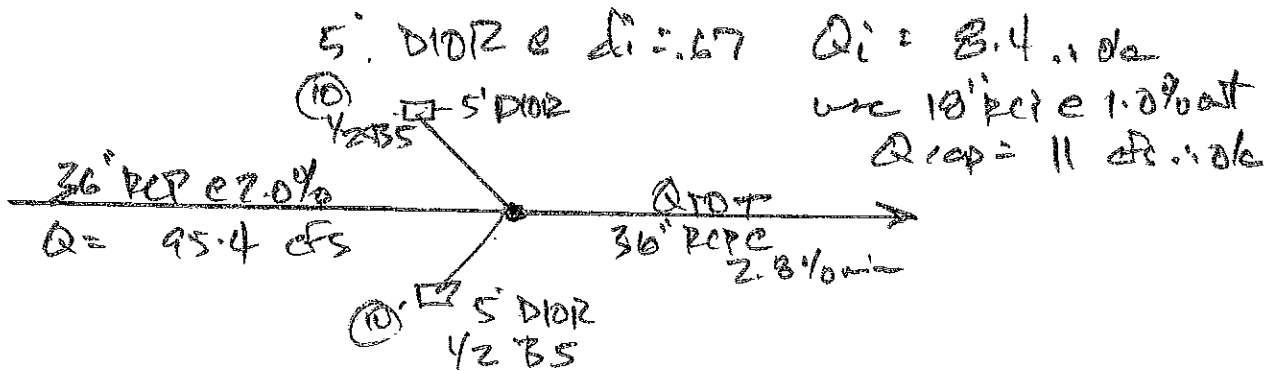 5' D10R @ di = .67 Qi = 8.4 ∴ ok
use 18" RCP @ 1.0% out
Qcap = 11 cfs ∴ ok
10 5' D10R
1/2 B5
36" RCP @ 2.0%
Q = 95.4 cfs
QTOT
36" RCP @
2.8% min
10 5' D10R
1/2 B5